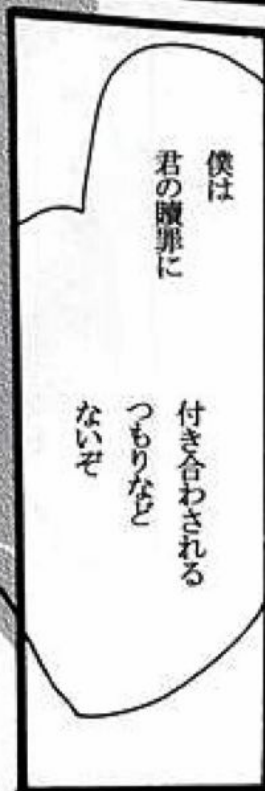 僕は
君の贖罪に
付き合わされる
つもりなど
ないぞ